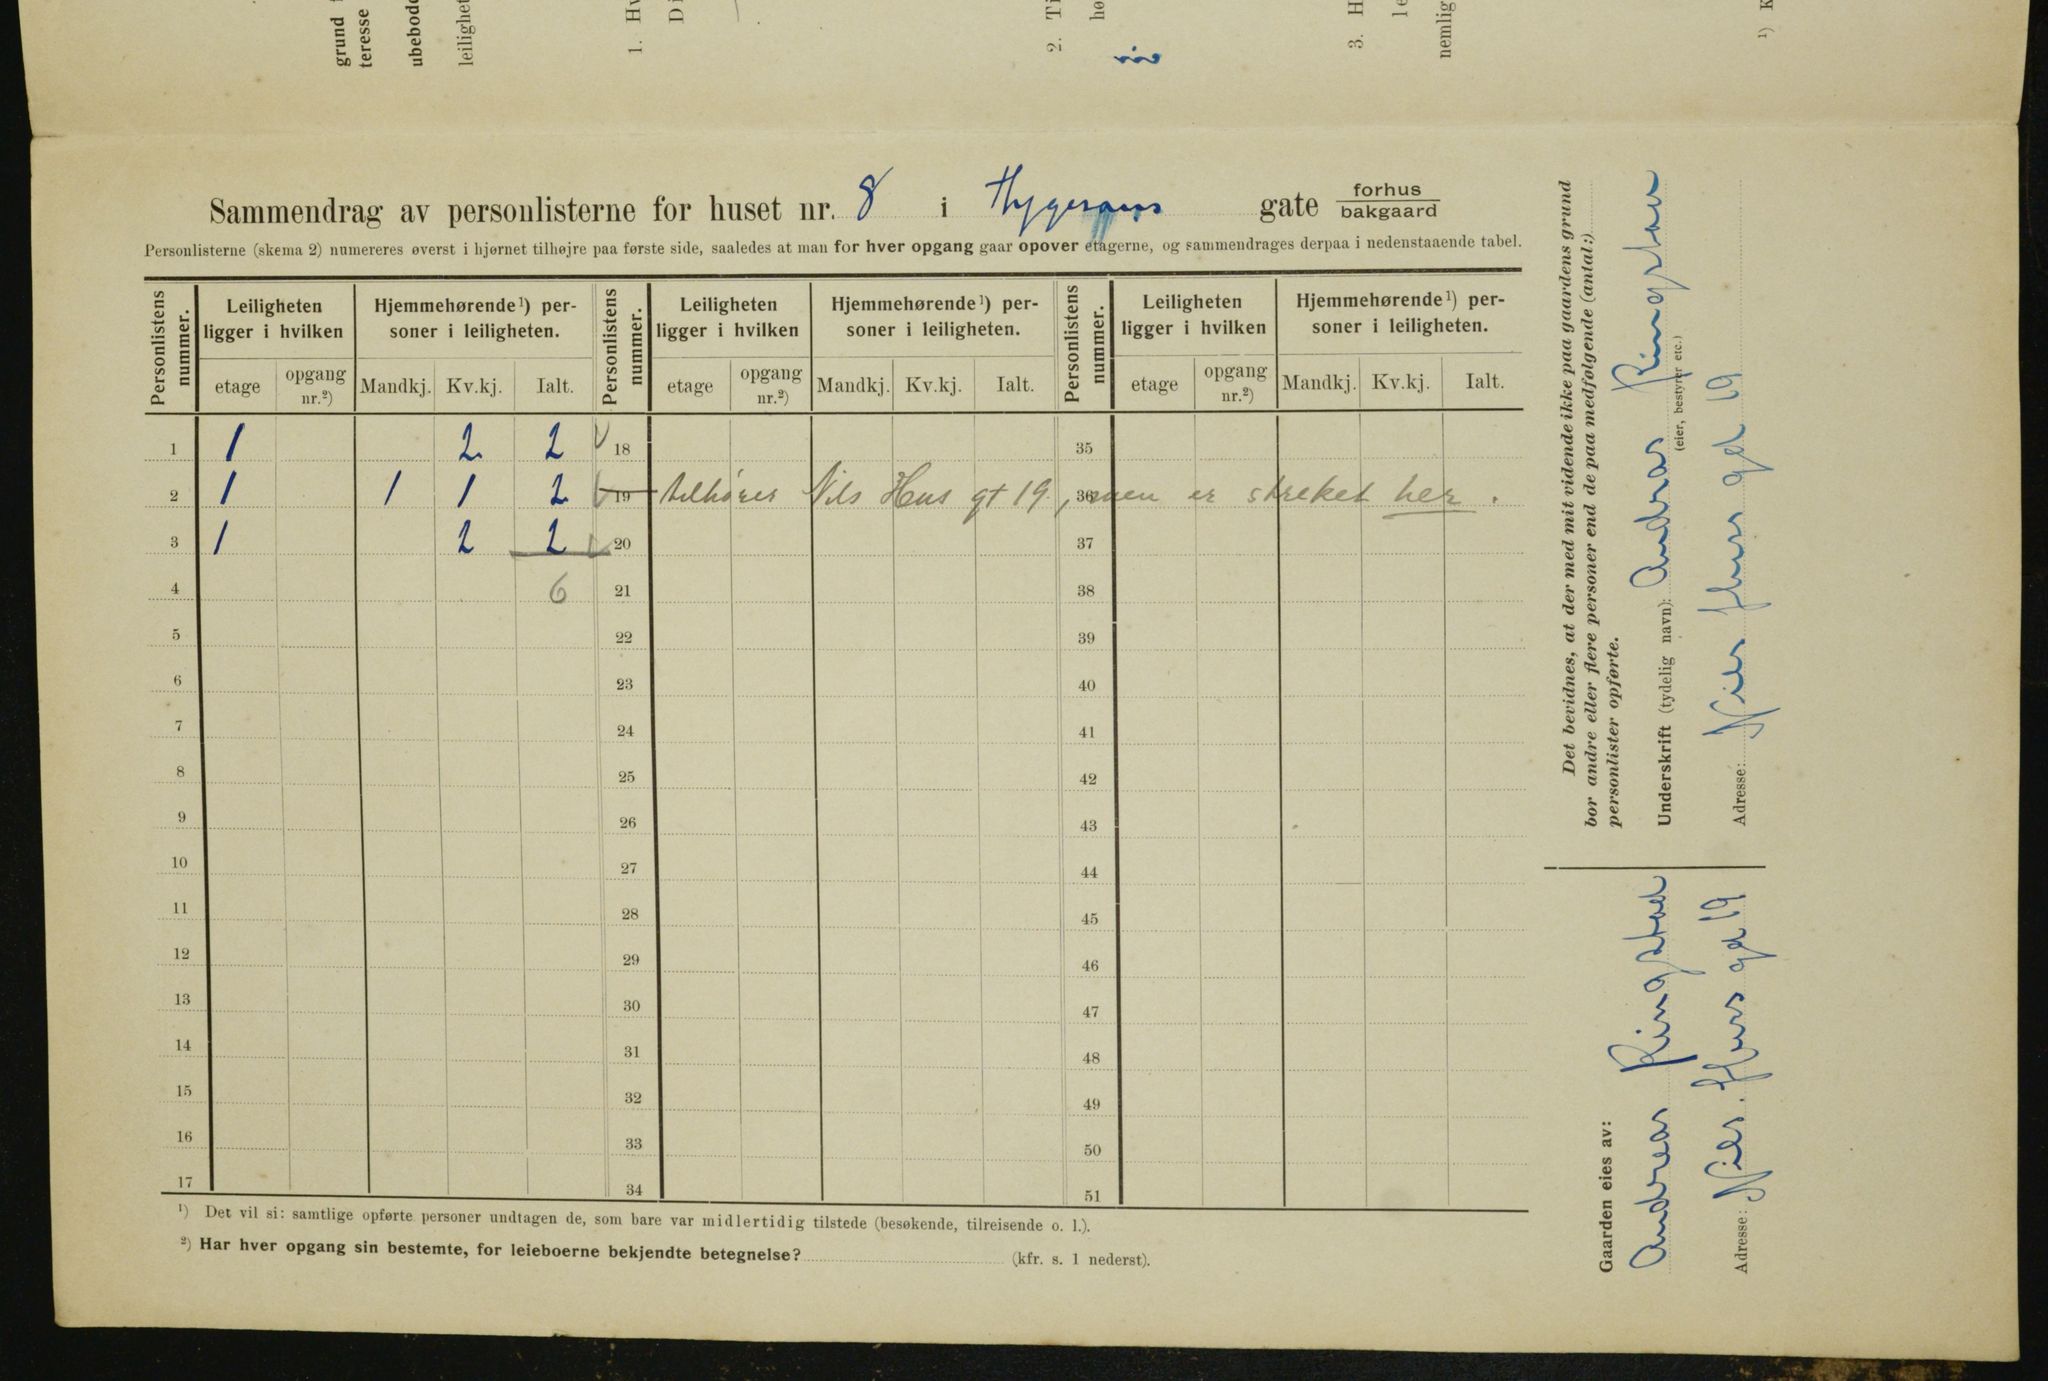 grund
teresse
ubebodd
leilighet
1. Hv
D
2. Ti
hø
3. H
le
nemlig
¹) K
Sammendrag av personlisterne for huset nr. 8 i gate forhus
bakgaard
Personlisterne (skema 2) numereres øverst i hjørnet tilhøjre paa første side, saaledes at man for hver opgang gaar opover etagerne, og sammendrages derpaa i nedenstaaende tabel.
Personlistens nummer. Leiligheten ligger i hvilken Hjemmehørende¹) personer i leiligheten. Personlistens nummer. Leiligheten ligger i hvilken Hjemmehørende¹) personer i leiligheten. Personlistens nummer. Leiligheten ligger i hvilken Hjemmehørende¹) personer i leiligheten.
etage opgang nr.²) Mandkj. Kv.kj. Ialt. etage opgang nr.²) Mandkj. Kv.kj. Ialt. etage opgang nr.²) Mandkj. Kv.kj. Ialt.
1 1 2 2 18 35
2 1 1 1 2 19 tilhører Nils Hus gt 19, 36 men er streket her.
3 1 2 2 20 37
4 6 21 38
5 22 39
6 23 40
7 24 41
8 25 42
9 26 43
10 27 44
11 28 45
12 29 46
13 30 47
14 31 48
15 32 49
16 33 50
17 34 51
¹) Det vil si: samtlige opførte personer undtagen de, som bare var midlertidig tilstede (besøkende, tilreisende o. l.).
²) Har hver opgang sin bestemte, for leieboerne bekjendte betegnelse? (kfr. s. 1 nederst).
Det bevidnes, at der med mit vidende ikke paa gaardens grund
bor andre eller flere personer end de paa medfølgende (antal:)
personlister opførte.
Underskrift (tydelig navn): Andreas Ringstad
(eier, bestyrer etc.)
Adresse: Nils Hus gd 19
Gaarden eies av:
Andreas Ringstad
Adresse: Nils Hus gd 19